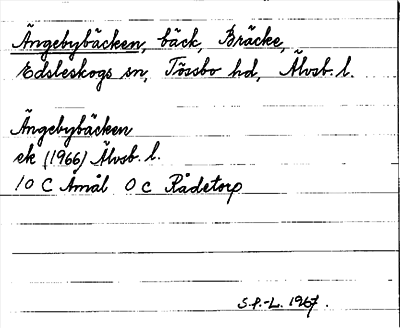 Ängebybäcken, bäck, Bräcke,
Edsleskogs sn, Tössbo hd, Älvsb. l.
Ängebybäcken
ek (1966) Älvsb. l.
10 C Åmål 0 c Rådetorp
S.P.-L. 1967.